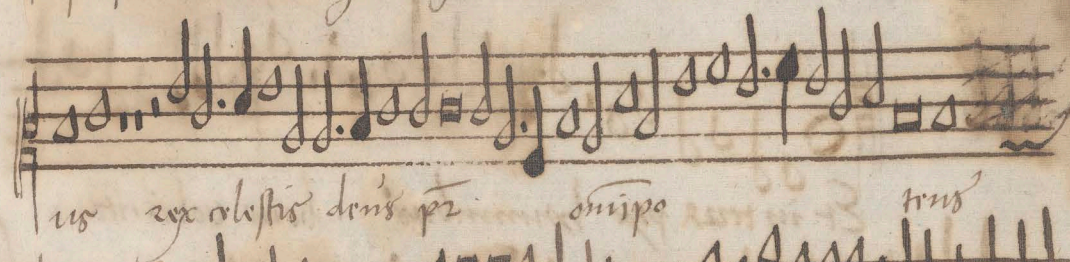 us rex celestis deus pr̄ om̄ipo tens